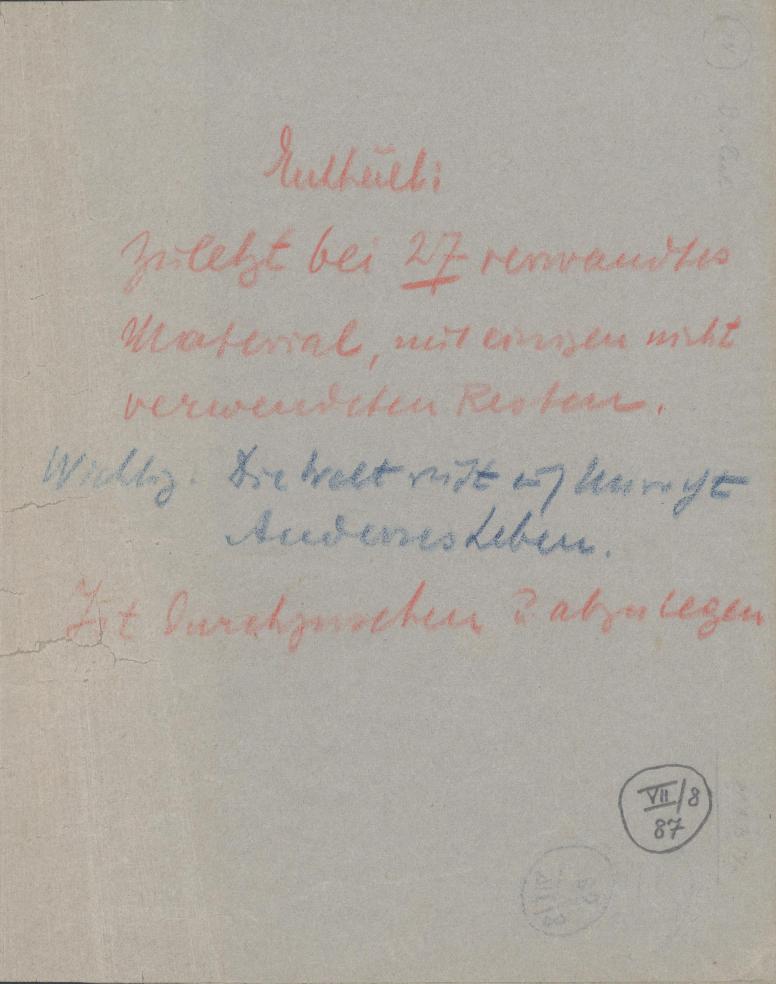 Enthält:
Zuletzt bei 27 verwandtes
Material, mit einigen nicht
verwendeten Resten.
Wichtig: Die Welt ruht auf Unrecht
Anderes Leben.
Ist durchzusehen & abzulegen
VII/8
87